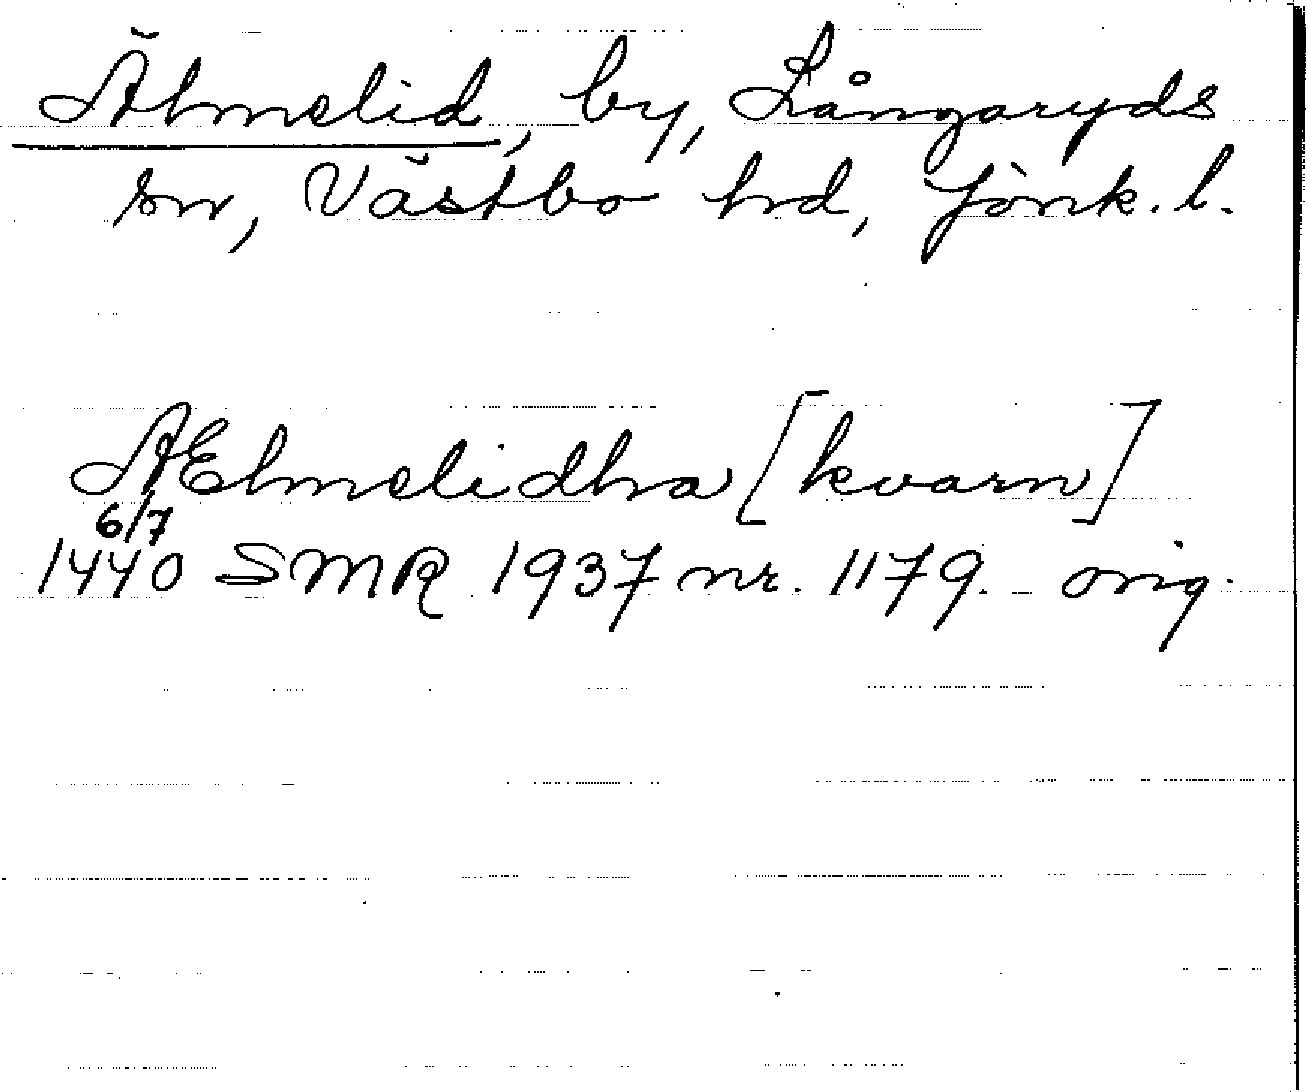 Älmelid, by, Långaryds
sn, Västbo hd, Jönk. l.
AElmelidhra [kvarn]
6/7
1440 SMR 1937 nr. 1179. orig.